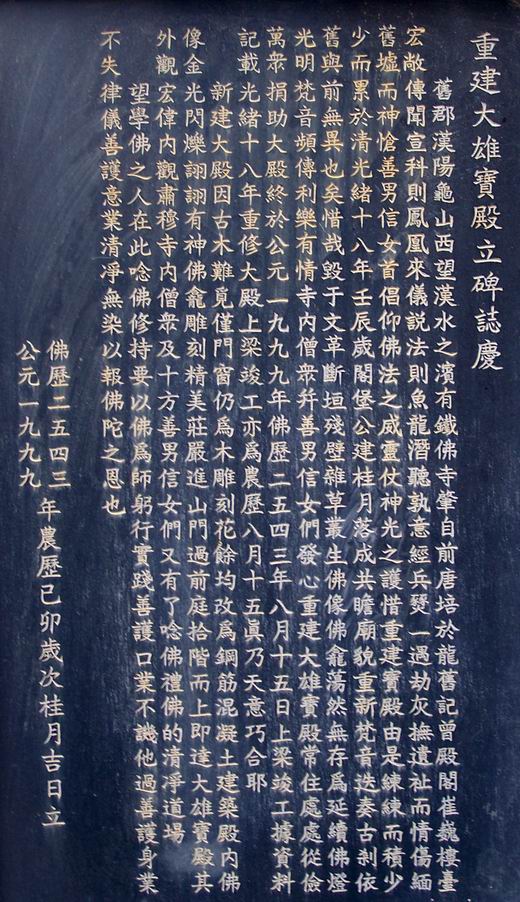 重建大雄寶殿立碑誌慶
舊郡漢陽龜山西望漢水之濱有鐵佛寺肇自前唐培於龍舊記曾殿閣崔巍樓臺
宏敞傳聞宣科則鳳凰來儀説法則魚龍潛聽孰意經兵燹一遇劫灰撫遺祉而情傷緬
舊墟而神愴善男信女首倡仰佛法之威靈仗神光之護惜重建寶殿由是練練而積少
少而累於清光緒十八年壬辰歲閣堡公建桂月落成共瞻廟貌重新梵音迭奏古剎依
舊與前無異也矣惜哉毀于文革斷垣殘壁雜草叢生佛像佛龕蕩然無存爲延續佛燈
光明梵音頻傳利樂有情寺内僧衆并善男信女們發心重建大雄寶殿常住處處從儉
萬衆捐助大殿終於公元一九九九年佛歷二五四三年八月十五日上梁竣工據資料
記載光緒十八年重修大殿上梁竣工亦爲農歷八月十五眞乃天意巧合耶
新建大殿因古木難覓僅門窗仍爲木雕刻花餘均改爲鋼筋混凝土建築殿内佛
像金光閃爍詡詡有神佛龕雕刻精美莊嚴進山門過前庭拾階而上即達大雄寶殿其
外觀宏偉内觀肅穆寺内僧衆及十方善男信女們又有了唸佛禮佛的清淨道場
望學佛之人在此唸佛修持要以佛爲師躬行實踐善護口業不譏他過善護身業
不失律儀善護意業清淨無染以報佛陀之恩也
佛歷二五四三
公元一九九九
年農歷己卯歲次桂月吉日立